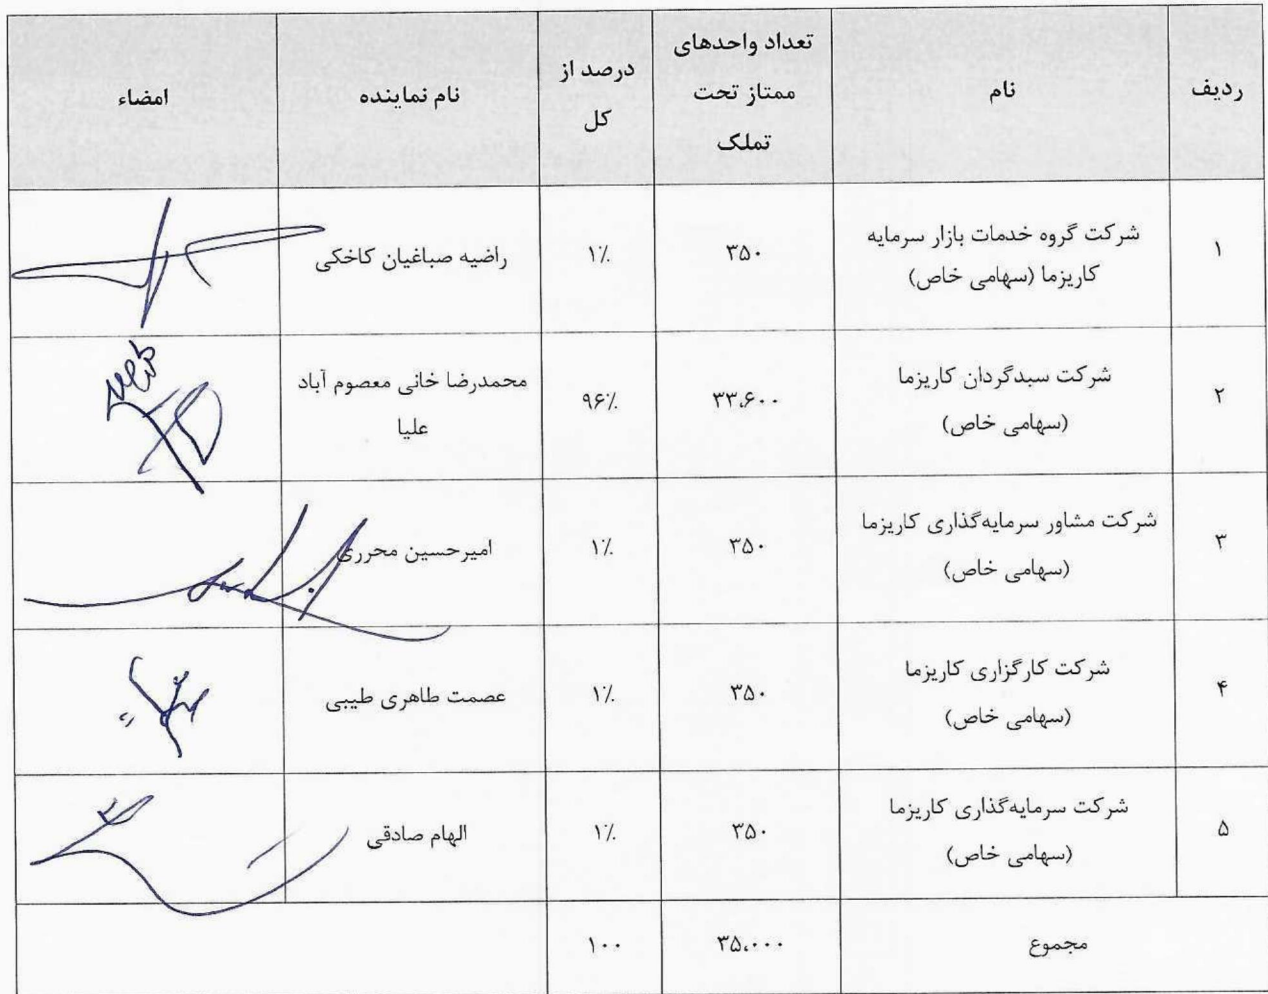 ردیف
نام
تعداد واحدهای
ممتاز تحت
تملک
درصد از
کل
نام نماینده
امضاء
۱
شرکت گروه خدمات بازار سرمایه
کاریزما (سهامی خاص)
۳۵۰
۱٪
راضیه صباغیان کاخکی
۲
شرکت سبدگردان کاریزما
(سهامی خاص)
۳۳،۶۰۰
۹۶٪
محمدرضا خانی معصوم آباد
علیا
۳
شرکت مشاور سرمایه‌گذاری کاریزما
(سهامی خاص)
۳۵۰
۱٪
امیرحسین محرری
۴
شرکت کارگزاری کاریزما
(سهامی خاص)
۳۵۰
۱٪
عصمت طاهری طیبی
۵
شرکت سرمایه‌گذاری کاریزما
(سهامی خاص)
۳۵۰
۱٪
الهام صادقی
مجموع
۳۵،۰۰۰
۱۰۰